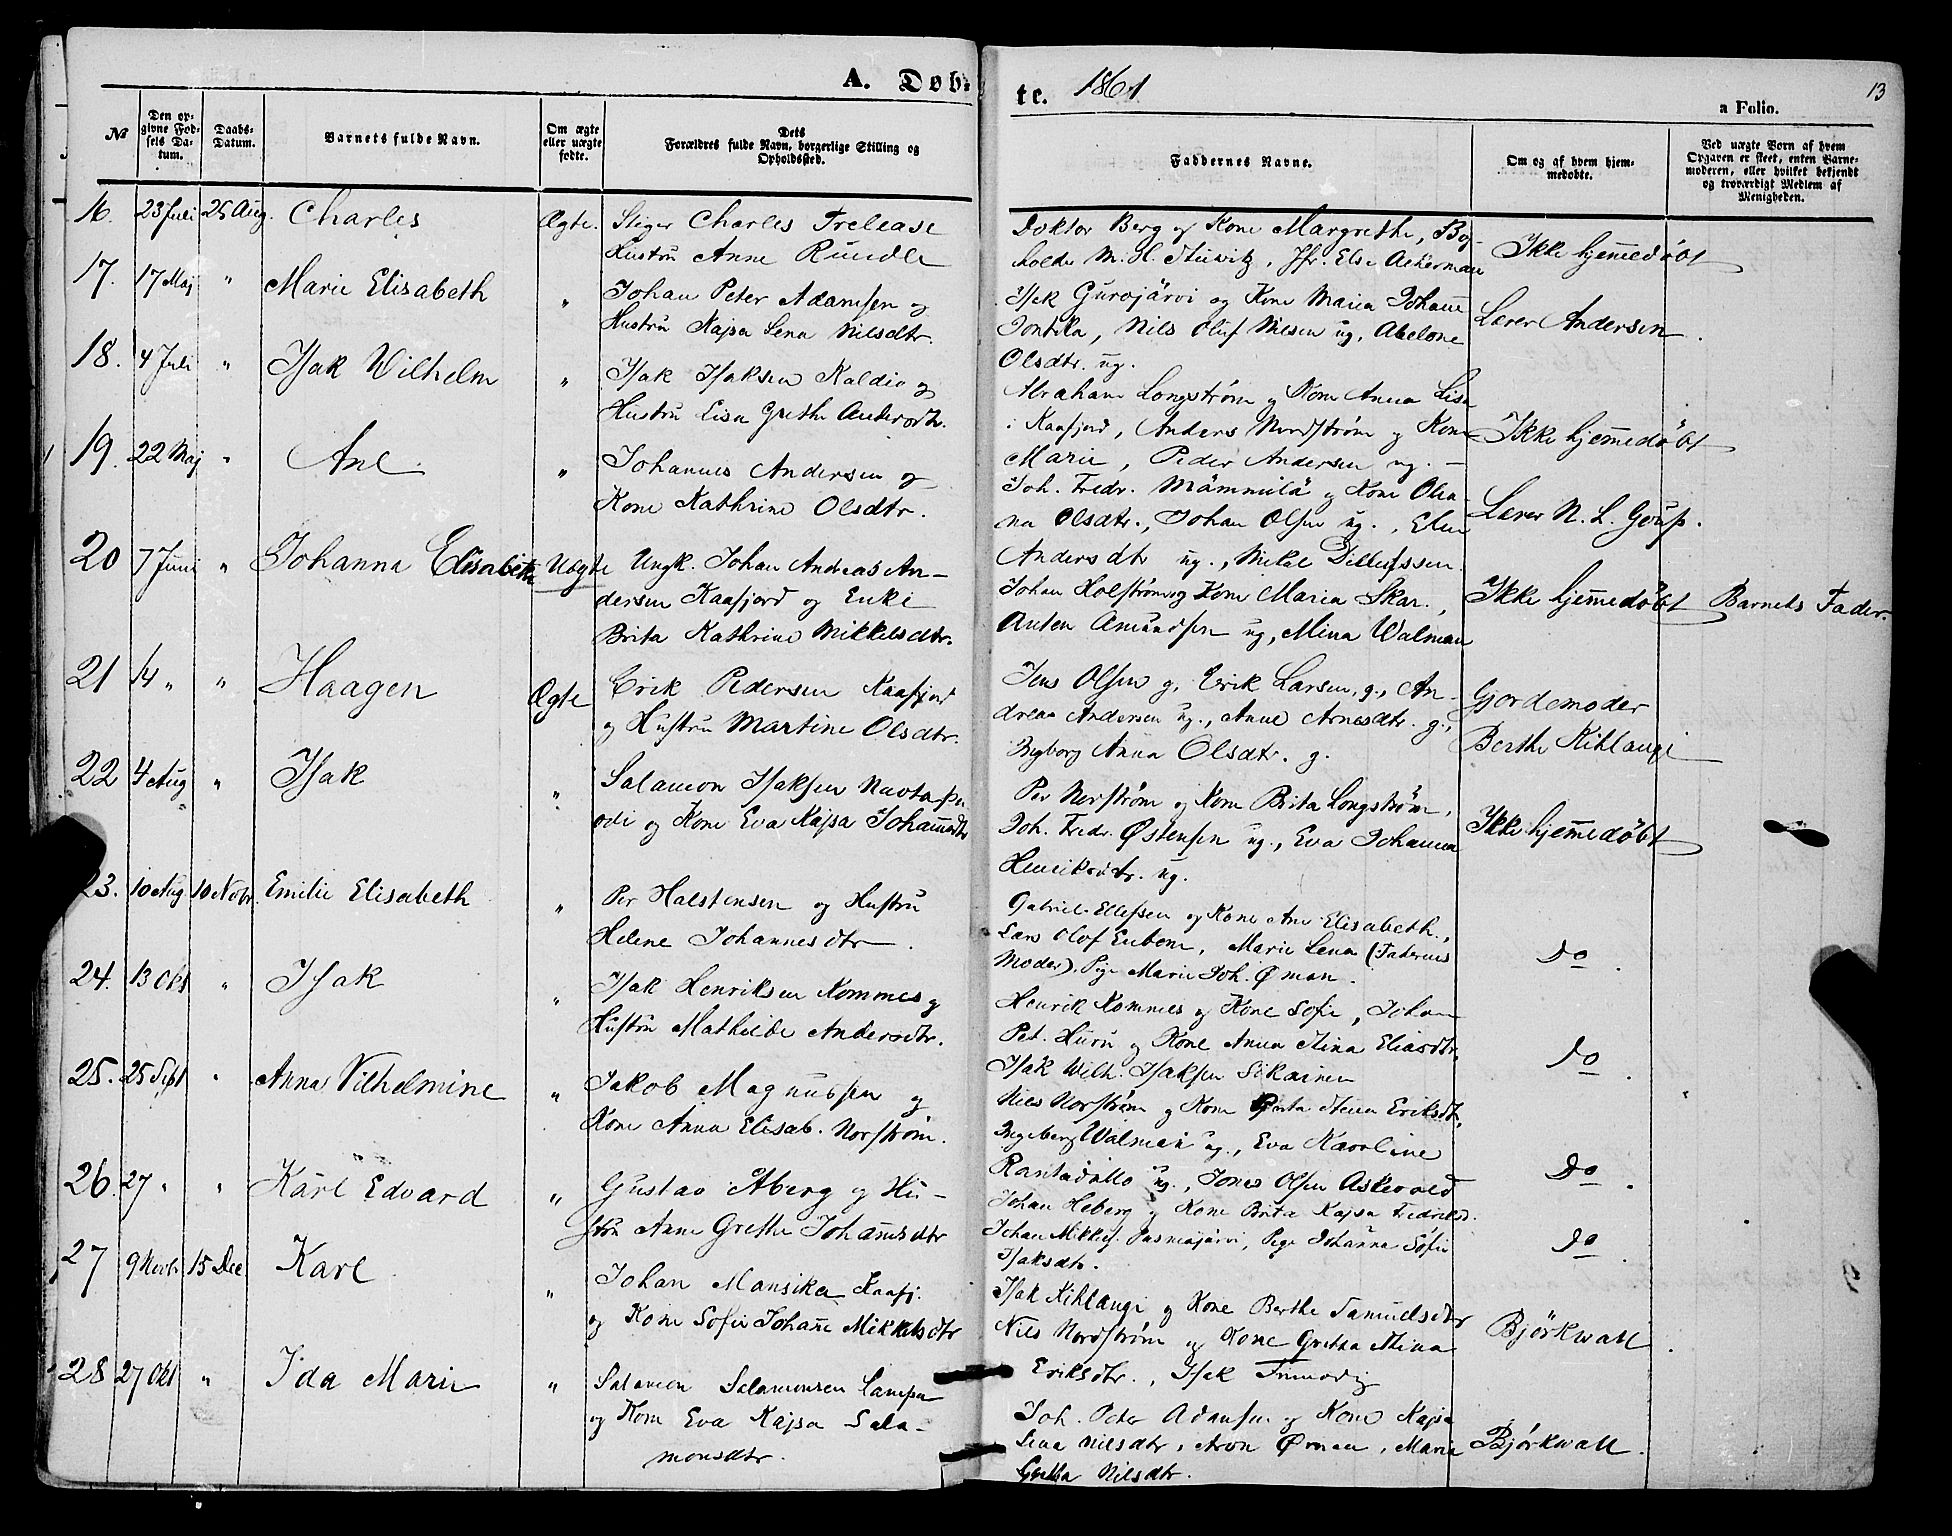 A. Døbte. 1861
13
a Folio.
№
Den opgivne Fødsels Datum.
Daabs-Datum.
Barnets fulde Navn.
Om ægte eller uægte fødte.
Dets Forældres fulde Navn, borgerlige Stilling og Opholdsted.
Faddernes Navne.
Om og af hvem hjemmedøbte.
Ved uægte Børn af hvem Opgaven er skeet, enten Barnemoderen, eller hvilket bekjendt og troværdigt Medlem af Menigheden.
16. 23 Juli 25 Aug. Charles Ægte. Stiger Charles Trelease
Hustru Anne Rundle
Doktor Berg og Kone Margrethe, Bog-
holder M. H. Stuwitz, Jfr. Else Ackerman
Ikke hjemedøbt
17. 17 Maj " Marie Elisabeth " Johan Peter Adamsen og
Hustru Kajsa Lena Nilsdtr.
Isak Gurojärvi og Kone Maria Johanne
Jontila, Nils Oluf Nilsen ug, Abelone
Olsdtr. ug.
Lærer Andersen.
18. 4 Juli " Isak Wilhelm " Isak Isaksen Kaldio og
Hustru Lisa Grethe Andersdtr.
Abraham Longstrøm og Kone Anna Lisa
i Kaafjord, Anders Nordstrøm og Kone
Marie, Peder Andersen ug.
Ikke hjemedøbt
19. 22 Maj " Ane " Johannes Andersen og
Kone Kathrine Olsdtr.
Joh. Fredr. Mämmilä og Kone Olea-
na Olsdtr., Johan Olsen ug., Elen
Andersdtr ug., Mikal Dillefssen.
Lærer N. L. Goup.
20 7 Juni " Johanna Elisabeth Uægte Ungk. Johan Andreas An-
dersen Kaafjord og Enke
Brita Kathrine Mikkelsdtr.
Johan Holstrøm og Kone Maria Skar.,
Anton Amundsen ug, Mina Walman
Ikke hjemedøbt Barnets Fader.
21 14 " " Haagen Ægte Erik Pedersen Kaafjord
og Hustru Martine Olsdtr.
Jens Olsen g, Erik Larsen, g., An-
dreas Andersen ug., Anne Arnesdtr. g.,
Ingborg Anna Olsdtr. g.
Gjordemoder
Berthe Kihlangi
22 4 Aug " Isak " Salamon Isaksen
og Kone Eva Kajsa Johansdtr
Per Norstrøm og Kone Brita Longstrøm,
Joh. Fredr. Østensen ug., Eva Johanna
Henriksdtr. ug.
Ikke hjemedøbt
23. 10 Aug 10 Novbr. Emilie Elisabeth " Per Halstensen og Hustru
Helene Johannesdtr.
Gabriel Ellefsen og Kone Ane Elisabeth.,
Lars Olof Enbom, Marie Lena (Faderens
Moder). Pige Marie Joh. Øman.
Do.
24. 13 Okt " Isak " Isak Henriksen Kommes og
Hustru Mathilde Andersdtr.
Henrik Kommes og Kone Sofie, Johan
Pet. Huru og Kone Anna Stina Eliasdtr.
Isak Wilh. Isaksen Sikainen
Do.
25. 25 Sept " Anna Vilhelmine " Jakob Magnussen og
Kone Anna Elisab. Norstrøm.
Nils Norstrøm og Kone Greta Stina Eriksdtr.
Ingeborg Walman ug., Eva Karoline
Rantadillo ug., Jones Olsen Askevold
Do.
26. 27 " " Karl Edvard " Gustav Aberg og Hu-
stru Anne Grethe Johansdtr
Johan Heberg og Kone Brita Kajsa Fredriksd.
Johan Mikkels. Pasmajärvi, Pige Johanna Sofie
Isaksdtr.
Do.
27 9 Novbr 15 Dec Karl " Johan Mansika Kaafj.
og Kone Sofie Johane Mikkelsdtr
Isak Kihlangi og Kone Berthe Samuelsdtr
Nils Nordstrøm og Kone Gretha Stina
Eriksdtr., Isak
Bjørkwall.
28 27 Okt " Ida Marie " Salamon Salamonsen Lampa
og Kone Eva Kajsa Sala-
monsdtr.
Joh. Peter Adamsen og Kone Kajsa
Lena Nilsdtr, Aron Øman, Maria
Greta Nilsdtr.
Bjørkwall.